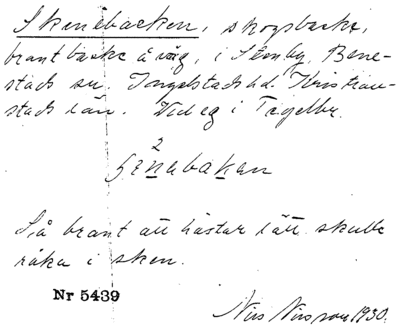 Skenebacken, skogsbacke,
brant backe å väg, i Stenby, Bene-
stads sn. Ingelstads hd. Kristian-
stads län. Uttal i Tryde
2
henebaken
Så brant att hästar lätt skulle
råka i sken.
Nr 5439
Nils Nilsson 1930.